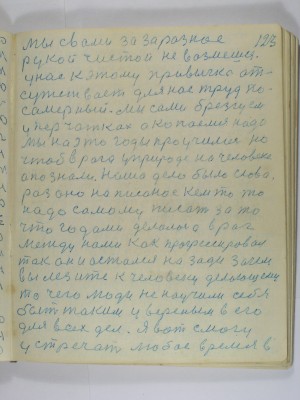 мы с вами за заразное 123
рукой чистой не возмешь.
у нас к этому привычка от-
сутствает для нас труд по-
самерный. Мы сами брезгуем
у перчатках а копаемся надо
мы на это годы проучились но
чтоб врага у природе на человеке
опознали. Наша дело было слова.
раз оно написаное кем то то
надо самому писат за то
что годами делалося враг
между нами как прогресировал
так он и остался на зади зачем
вы лезите к человеку делающему
то чего люди не научили себя
быт таким и веренем в его
для всех дел. Я вот смогу
устречат любое время в